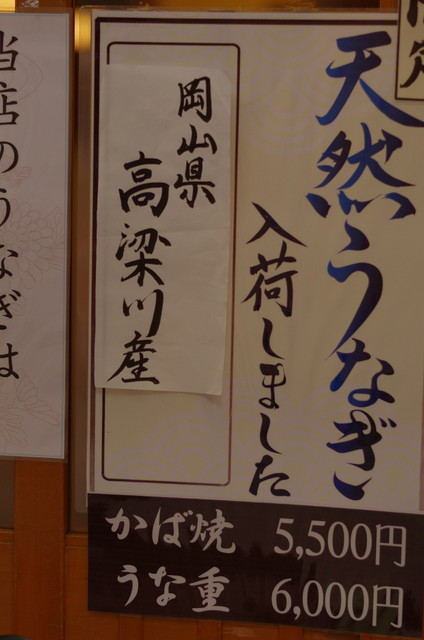 天然うなぎ
入荷しました
岡山県
高梁川産
かば焼 5,500円
うな重 6,000円
当店のうなぎは